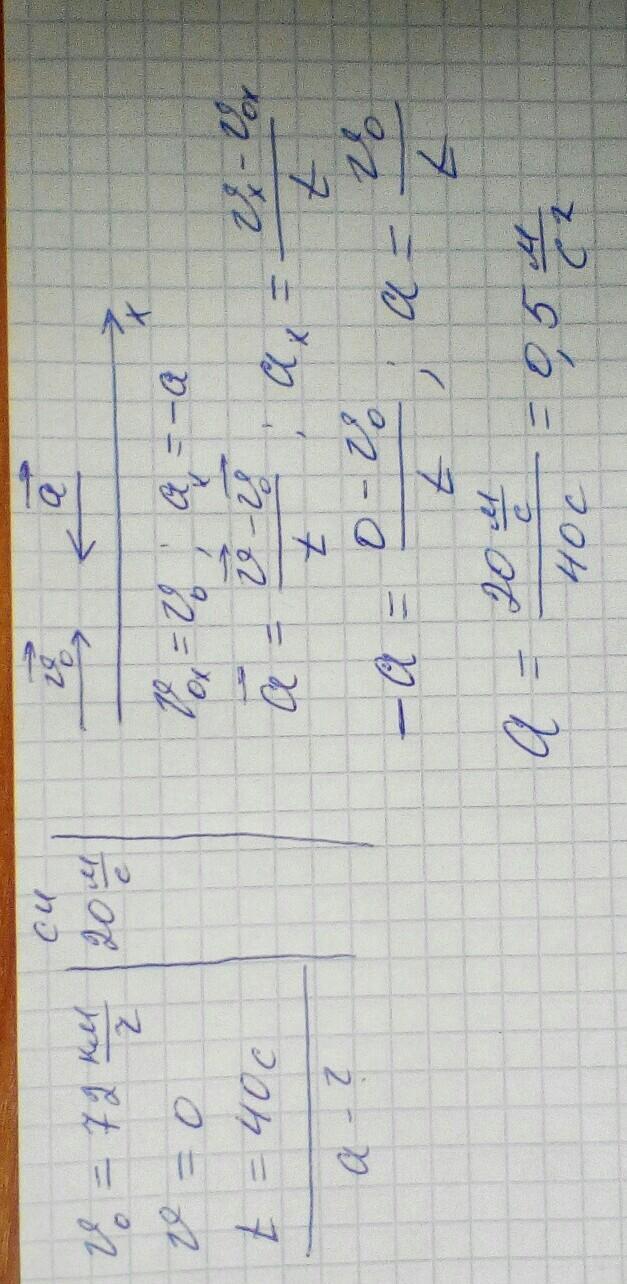 v₀ = 72 км/ч
v = 0
t = 40 с
a - ?
СИ
20 м/с
v⃗₀ a⃗
x
v₀ₓ = v₀; aₓ = -a
a⃗ = (v⃗ - v⃗₀)/t; aₓ = (vₓ - v₀ₓ)/t
-a = (0 - v₀)/t; a = v₀/t
a = (20 м/с)/(40 с) = 0,5 м/с²